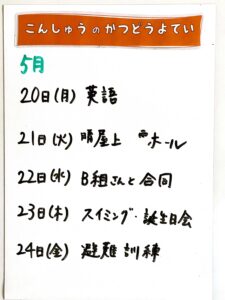 こんしゅうのかつどうよてい
5月
20日(月) 英語
21日(火) 晴屋上 雨ホール
22日(水) B組さんと合同
23日(木) スイミング・誕生日会
24日(金) 避難訓練